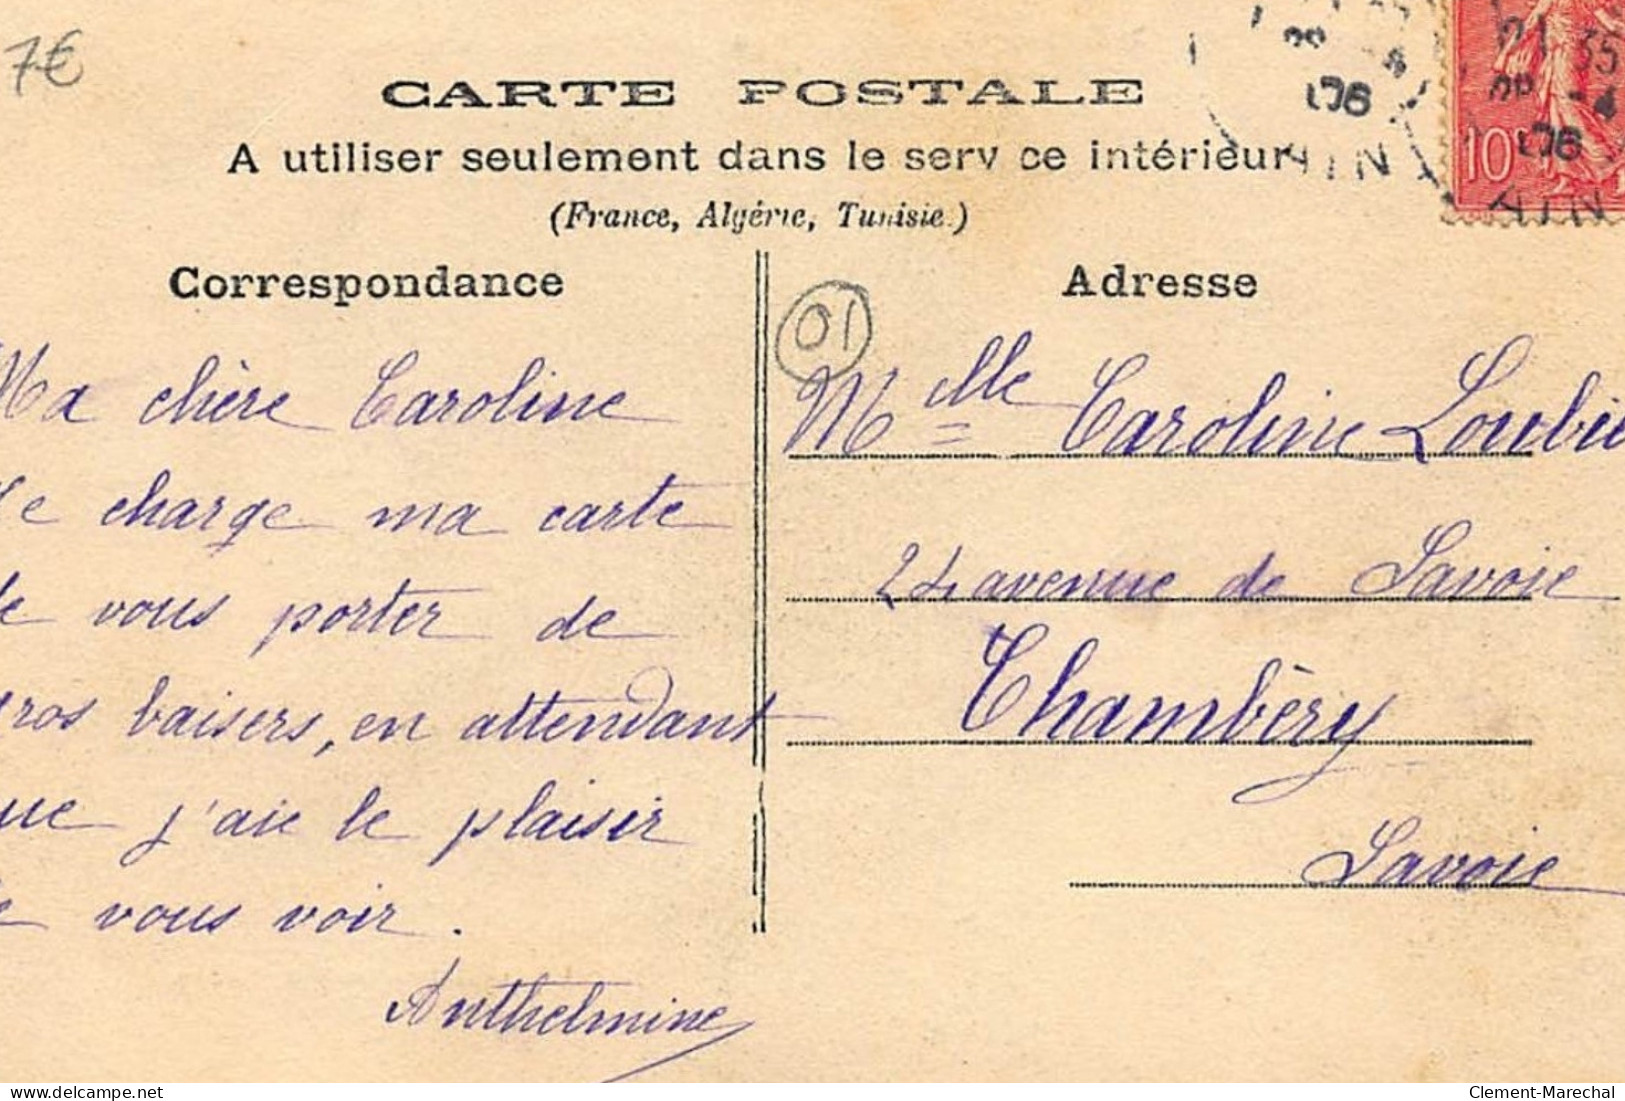 7€
CARTE POSTALE
A utiliser seulement dans le serv ce intérieur
(France, Algérie, Tunisie.)
Correspondance
Adresse
01
Ma chère Caroline
Je charge ma carte
de vous porter de
gros baisers, en attendant
que j'aie le plaisir
de vous voir.
Anthelmine
Melle Caroline Loubie
24 avenue de Savoie
Chambéry
Savoie
10
06
AIN
06
AIN
Clement-Marechal